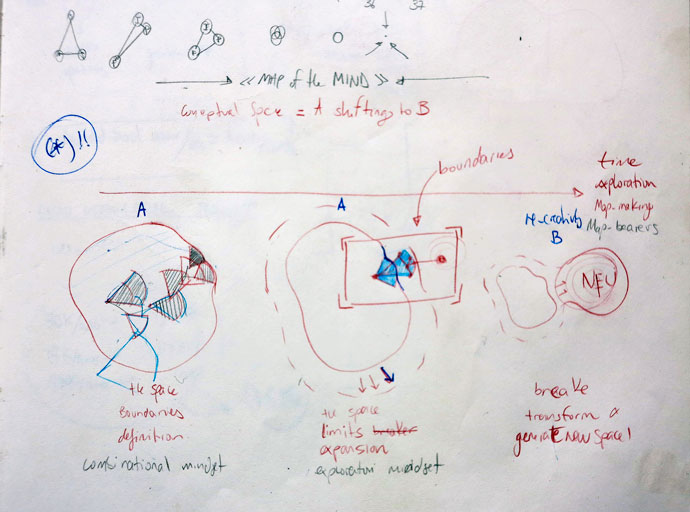 36 37
<< MAP of the MIND >>
conceptual space = A shifting to B
(*) !!
boundaries
time
exploration
Map-making
Map-bearers
A
A
B
NEU
the space
Boundaries
definition
combinational mindset
the space
limits breaker
expansion
mindset
breake
transform &
generate new space!